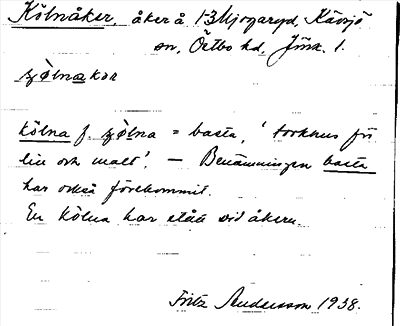 Kölnåker, åker å 1-3 Mjogaryd, Kävsjö
sn, Östbo hd, Jönk. l.
kölna f. = basta, 'torkhus för
lin och malt'. – Benämningen basta
har också förekommit.
En kölna har stått vid åkern.
Fritz Andersson 1938.